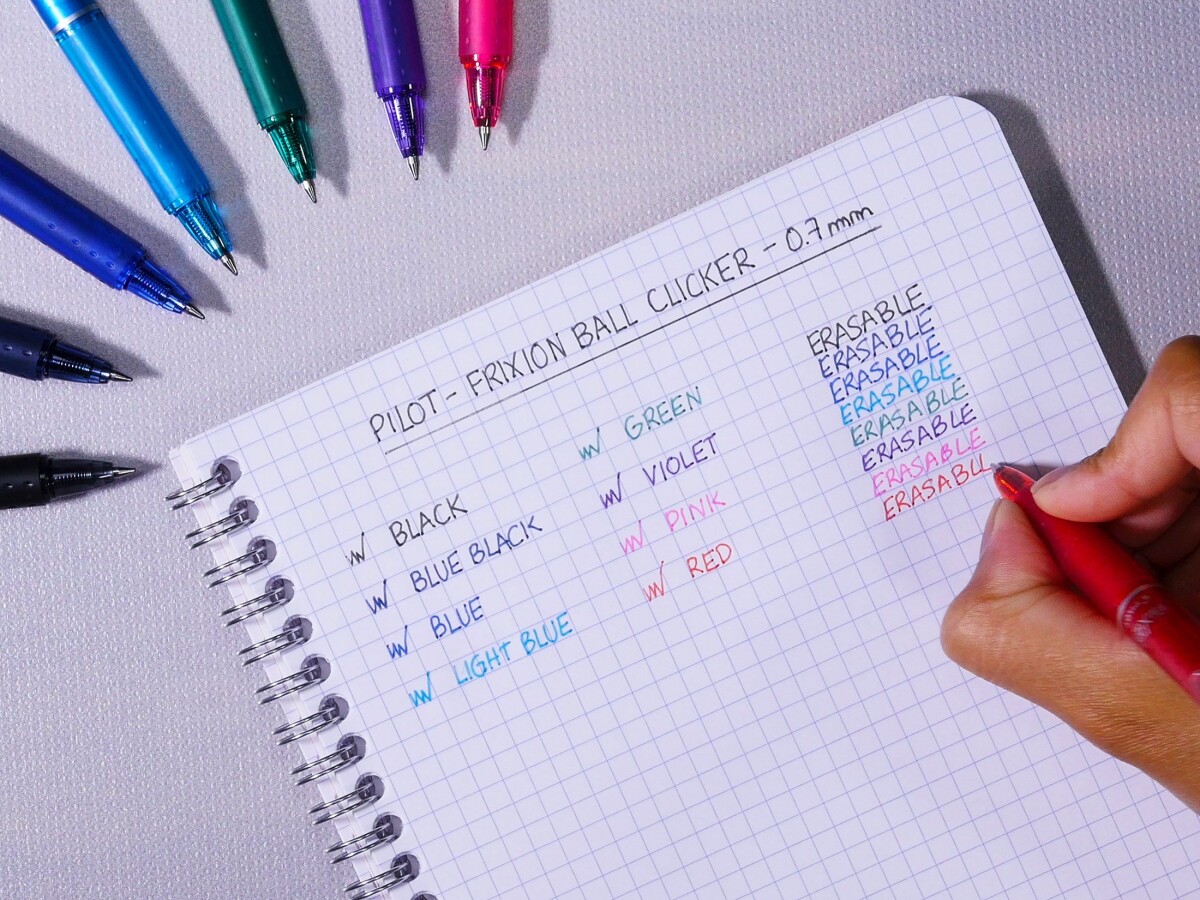 PILOT - FRIXION BALL CLICKER - 0.7mm
BLACK
BLUE BLACK
BLUE
LIGHT BLUE
GREEN
VIOLET
PINK
RED
ERASABLE
ERASABLE
ERASABLE
ERASABLE
ERASABLE
ERASABLE
ERASABLE
ERASABL